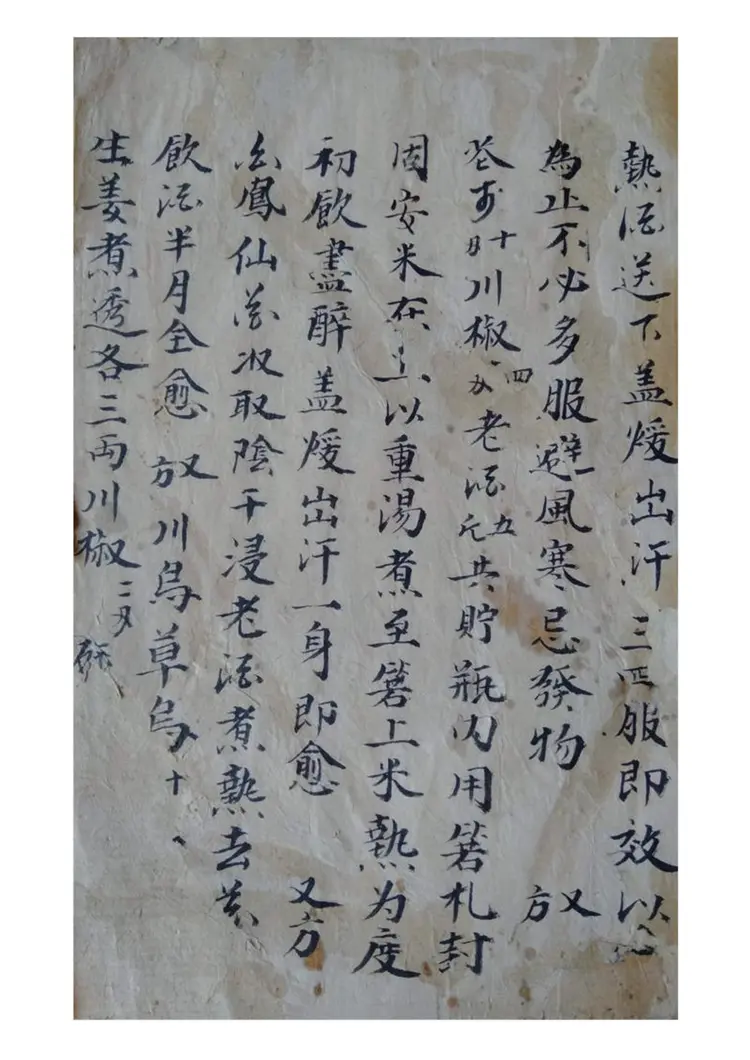 熱酒送下盖煖出汗三四服即效以
為止不必多服避風寒忌發物 又方
川椒四 老酒五斤共貯瓶內用箬札封
固安米在上以重湯煮至箬上米熟为度
初飲盡醉盖煖出汗一身即愈 又方
鳳仙花 取陰干浸老酒煮熱去
飲酒半月全愈 又方川烏草烏十
生姜煮透各三両川椒二